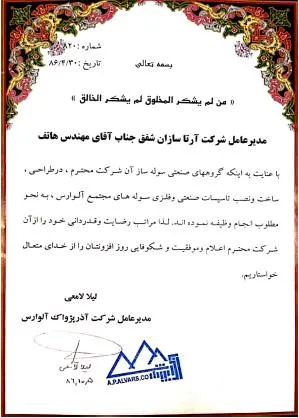 بسمه تعالی
شماره : ۸۲۰
تاریخ : ۸۶/۴/۳۰
« من لم یشکر المخلوق لم یشکر الخالق »
مدیرعامل شرکت آرتا سازان شفق جناب آقای مهندس هاتف
با عنایت به اینکه گروههای صنعتی سوله ساز آن شرکت محترم ، درطراحی ،
ساخت ونصب تاسیسات صنعتی وفلزی سوله های مجتمع آلوارس ، به نحو
مطلوب انجام وظیفه نموده اند. لذا مراتب رضایت وقدردانی خود را ازآن
شرکت محترم اعلام وموفقیت و شکوفایی روز افزونتان را از خدای متعال
خواستاریم.
لیلا لامعی
مدیرعامل شرکت آذرپژواک آلوارس
لیلا لامعی
A.P.ALVARS.CO